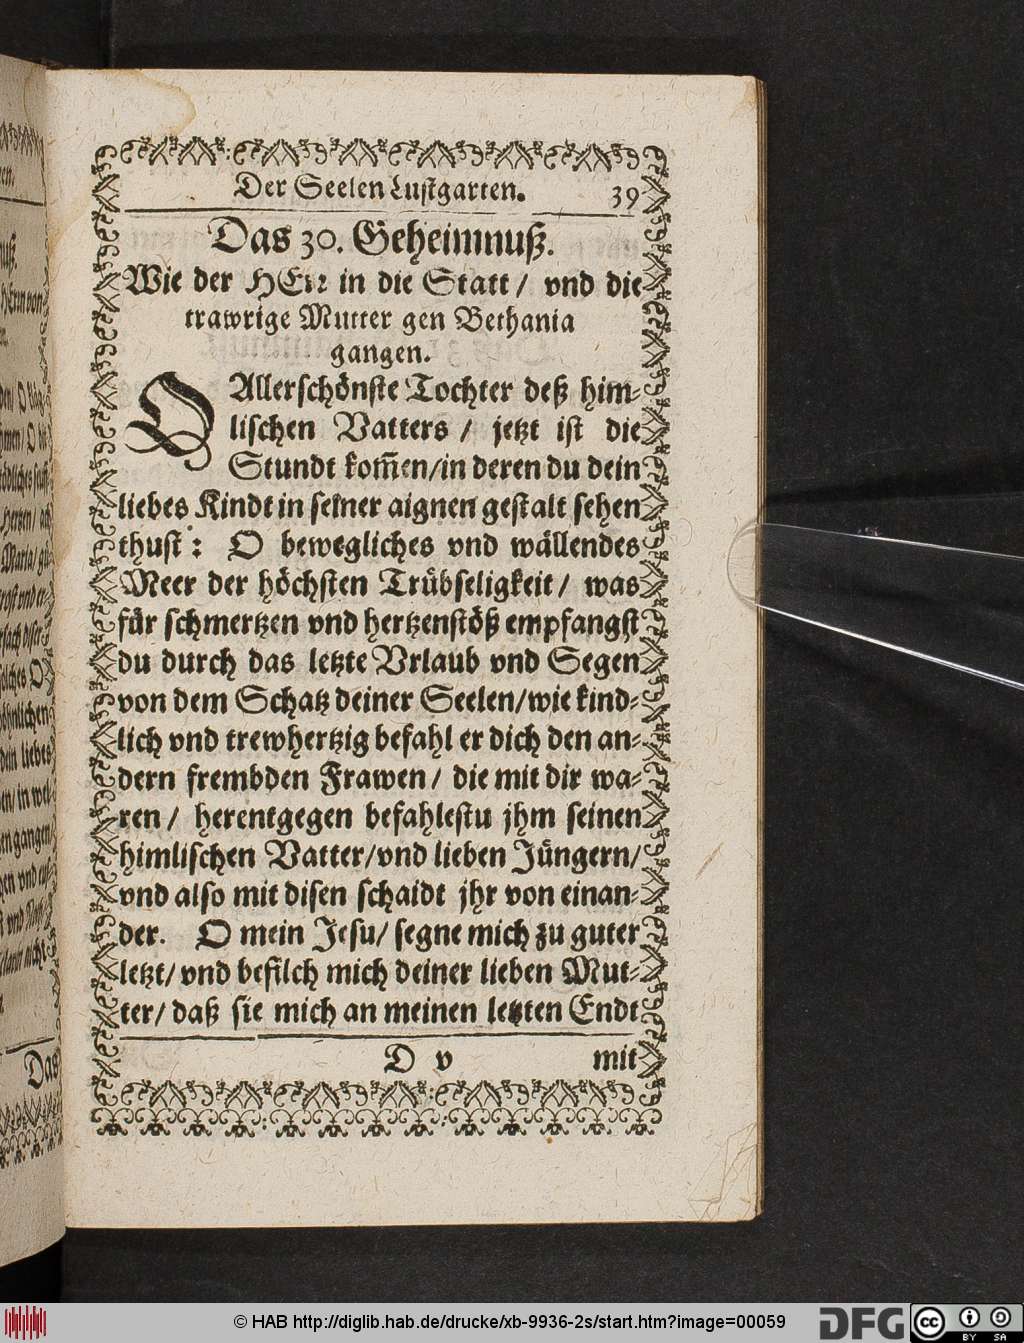 Der Seelen Lustgarten. 39
Das 30. Geheimnuß.
Wie der HErr in die Statt / vnd die
trawrige Mutter gen Bethania
gangen.
O Allerschönste Tochter deß him-
lischen Vatters / jetzt ist die
Stundt kom̃en/in deren du dein
liebes Kindt in seiner aignen gestalt sehen
thust : O bewegliches vnd wällendes
Meer der höchsten Trübseligkeit / was
für schmertzen vnd hertzenstöß empfangst
du durch das letzte Vrlaub vnd Segen
von dem Schatz deiner Seelen/wie kind-
lich vnd trewhertzig befahl er dich den an-
dern frembden Frawen / die mit dir wa-
ren / herentgegen befahlestu jhm seinen
himlischen Vatter/vnd lieben Jüngern/
vnd also mit disen schaidt jhr von einan-
der. O mein Jesu/ segne mich zu guter
letzt/ vnd befilch mich deiner lieben Mut-
ter/ daß sie mich an meinen letzten Endt
D v mit
Das
© HAB http://diglib.hab.de/drucke/xb-9936-2s/start.htm?image=00059
DFG
cc BY SA